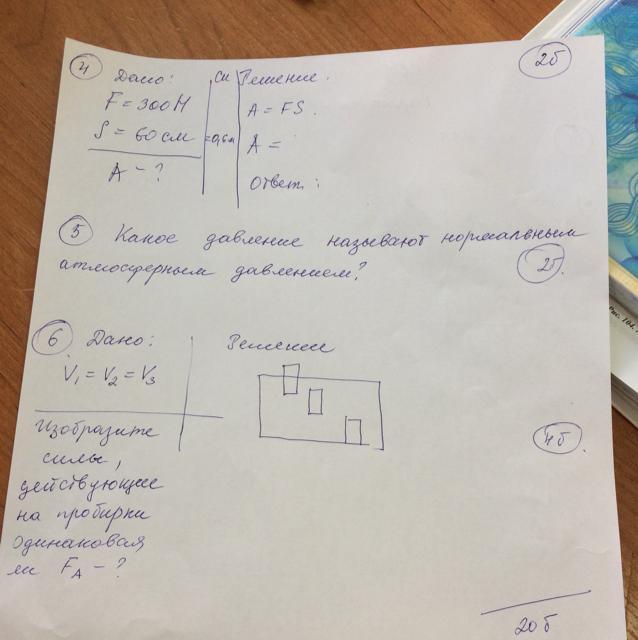 4 Дано: СИ Решение. 2б
F = 300Н A = FS.
S = 60 см =0,6м A =
A - ? Ответ:
5 Какое давление называют нормальным
атмосферным давлением? 2б.
6 Дано: Решение
V₁ = V₂ = V₃
Изобразите
силы, 4б.
действующие
на пробирки
одинаковая
ли F_A - ?
20б